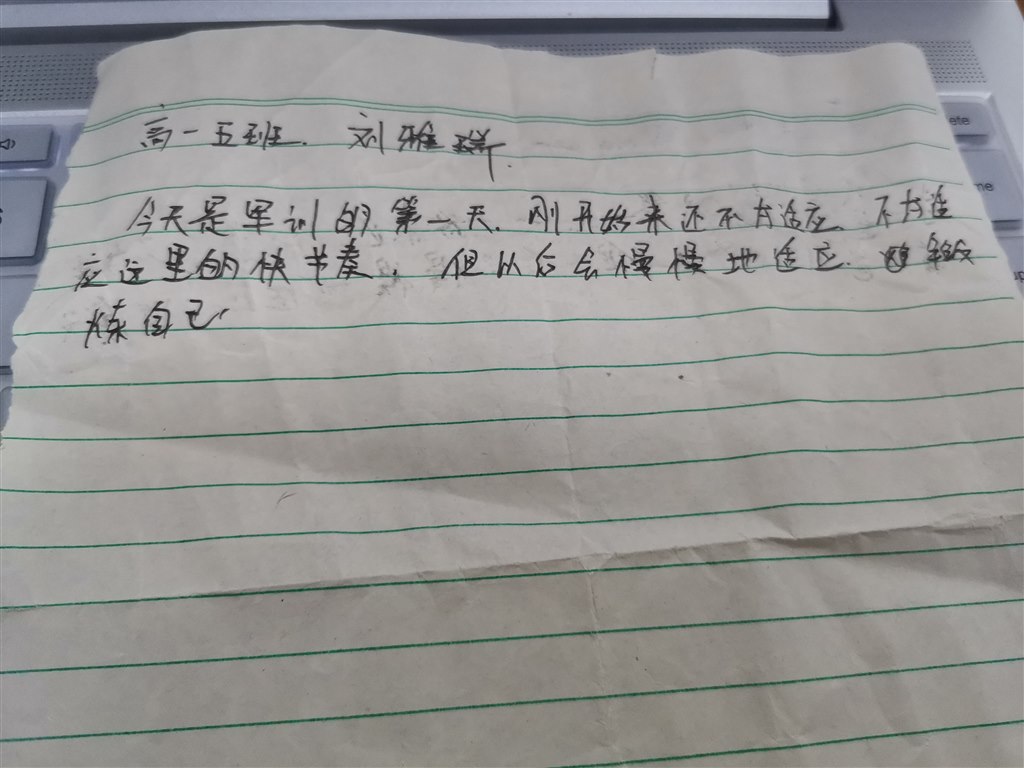 高一五班. 刘雅
今天是军训的第一天. 刚开始来还不太适应. 不太适
应这里的快节奏. 但以后会慢慢地适应. 锻
炼自己